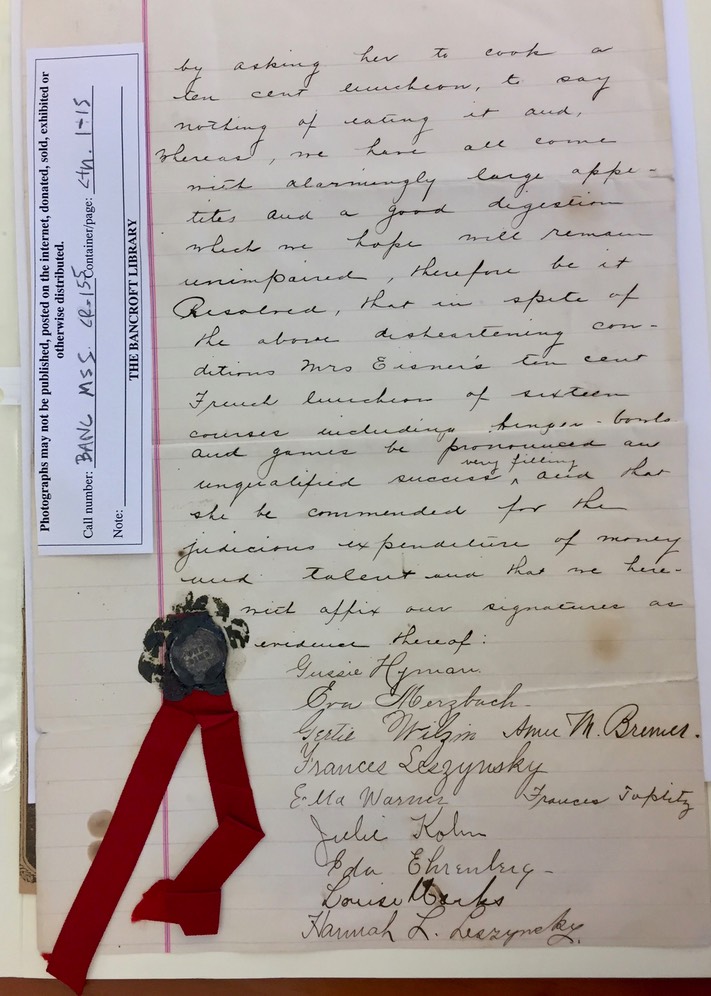 by asking her to cook a
ten cent luncheon, to say
nothing of eating it and,
Whereas, we have all come
with alarmingly large appe-
tites and a good digestion
which we hope will remain
unimpaired, therefore be it
Resolved, that in spite of
the above disheartening con-
ditions Mrs Eisner's ten cent
French luncheon of sixteen
courses including finger-bowls
and games be pronounced an
very filling
unqualified success ^ and that
she be commended for the
judicious expenditure of money
and talent and that we here-
with affix our signatures as
evidence thereof:
Gussie Hyman
Eva Merzbach
Gertie Wilzin Amie M. Bremer.
Frances Leszynsky
Ella Warner Frances Toplitz
Julie Kohn
Eda Ehrenberg
Louise Marks
Hannah L. Leszynsky.
Photographs may not be published, posted on the internet, donated, sold, exhibited or
otherwise distributed.
Call number: BANC MSS. CR-155 Container/page: ctn. 1-15
Note:
THE BANCROFT LIBRARY